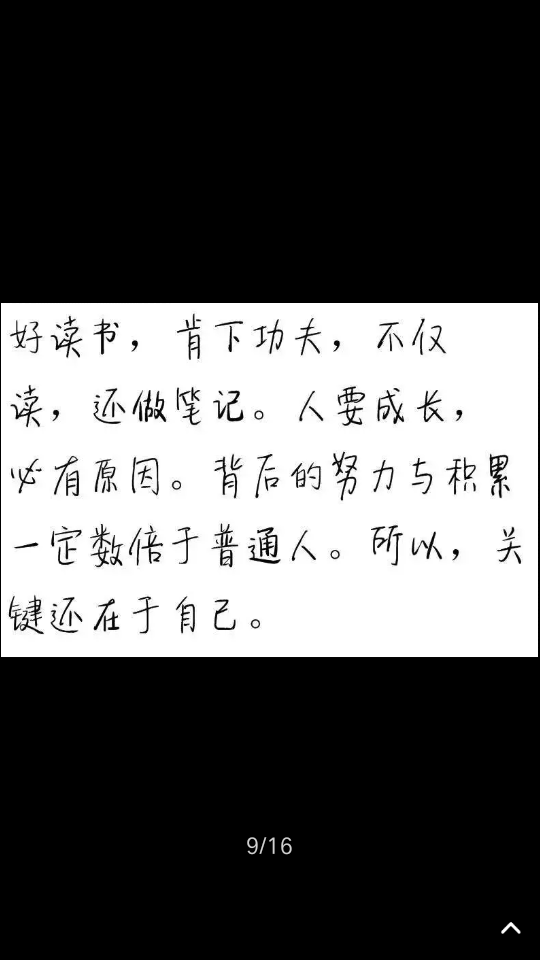 好读书，肯下功夫，不仅
读，还做笔记。人要成长，
必有原因。背后的努力与积累
一定数倍于普通人。所以，关
键还在于自己。
9/16